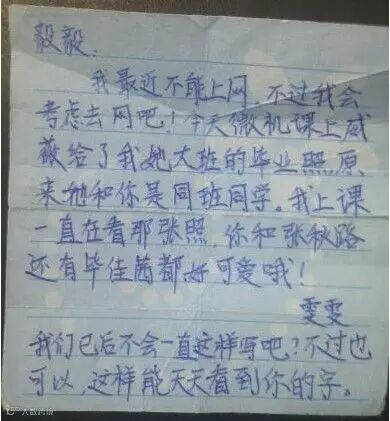 毅毅.
我最近不能上网,不过我会
考虑去网吧!今天微机课上威
薇给了我她大班的毕业照原
来她和你是同班同学。我上课
一直在看那张照,你和张秋路
还有毕佳茜都好可爱哦!
雯雯
我们已后不会一直这样写吧?不过也
可以,这样能天天看到你的字。